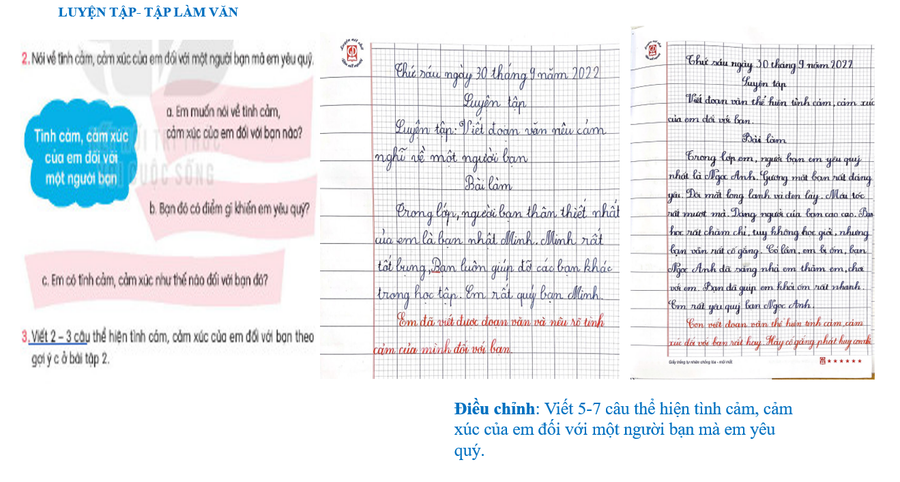 LUYỆN TẬP- TẬP LÀM VĂN
2. Nói về tình cảm, cảm xúc của em đối với một người bạn mà em yêu quý.
Tình cảm, cảm xúc
của em đối với
một người bạn
a. Em muốn nói về tình cảm,
cảm xúc của em đối với bạn nào?
b. Bạn đó có điểm gì khiến em yêu quý?
c. Em có tình cảm, cảm xúc như thế nào đối với bạn đó?
3. Viết 2 – 3 câu thể hiện tình cảm, cảm xúc của em đối với bạn theo
gợi ý c ở bài tập 2.
Thứ sáu ngày 30 tháng 9 năm 2022
Luyện tập
Luyện tập: Viết đoạn văn nêu cảm
nghĩ về một người bạn
Bài làm
Trong lớp, người bạn thân thiết nhất
của em là bạn nhật Minh. Minh rất
tốt bụng, Bạn luôn giúp đỡ các bạn khác
trong học tập. Em rất quý bạn Minh.
Em đã viết được đoạn văn và nêu rõ tình
cảm của mình đối với bạn.
Thứ sáu ngày 30 tháng 9 năm 2022
Luyện tập
Viết đoạn văn thể hiện tình cảm, cảm xúc
của em đối với bạn.
Bài làm
Trong lớp em, người bạn em yêu quý
nhất là Ngọc Anh. Gương mặt bạn rất đáng
yêu. Đôi mắt long lanh và đen láy. Mái tóc
rất mượt mà. Dáng người của bạn cao cao.
học rất chăm chỉ, tuy không học giỏi, nhưng
bạn vẫn rất cố gắng. Có lần, em bị ốm, bạn
Ngọc Anh đã sang nhà em thăm em, chơi
với em. Bạn đã giúp em khỏi ốm rất nhanh.
Em rất yêu quý bạn Ngọc Anh.
Con viết đoạn văn thể hiện tình cảm, cảm
xúc đối với bạn rất hay. Hãy cố gắng phát huy
Điều chỉnh: Viết 5-7 câu thể hiện tình cảm, cảm
xúc của em đối với một người bạn mà em yêu
quý.